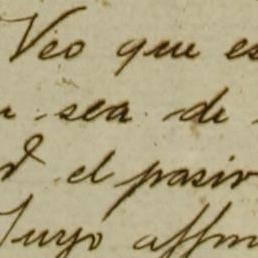 Veo que es
sea de
el pasiv
Tuyo affm